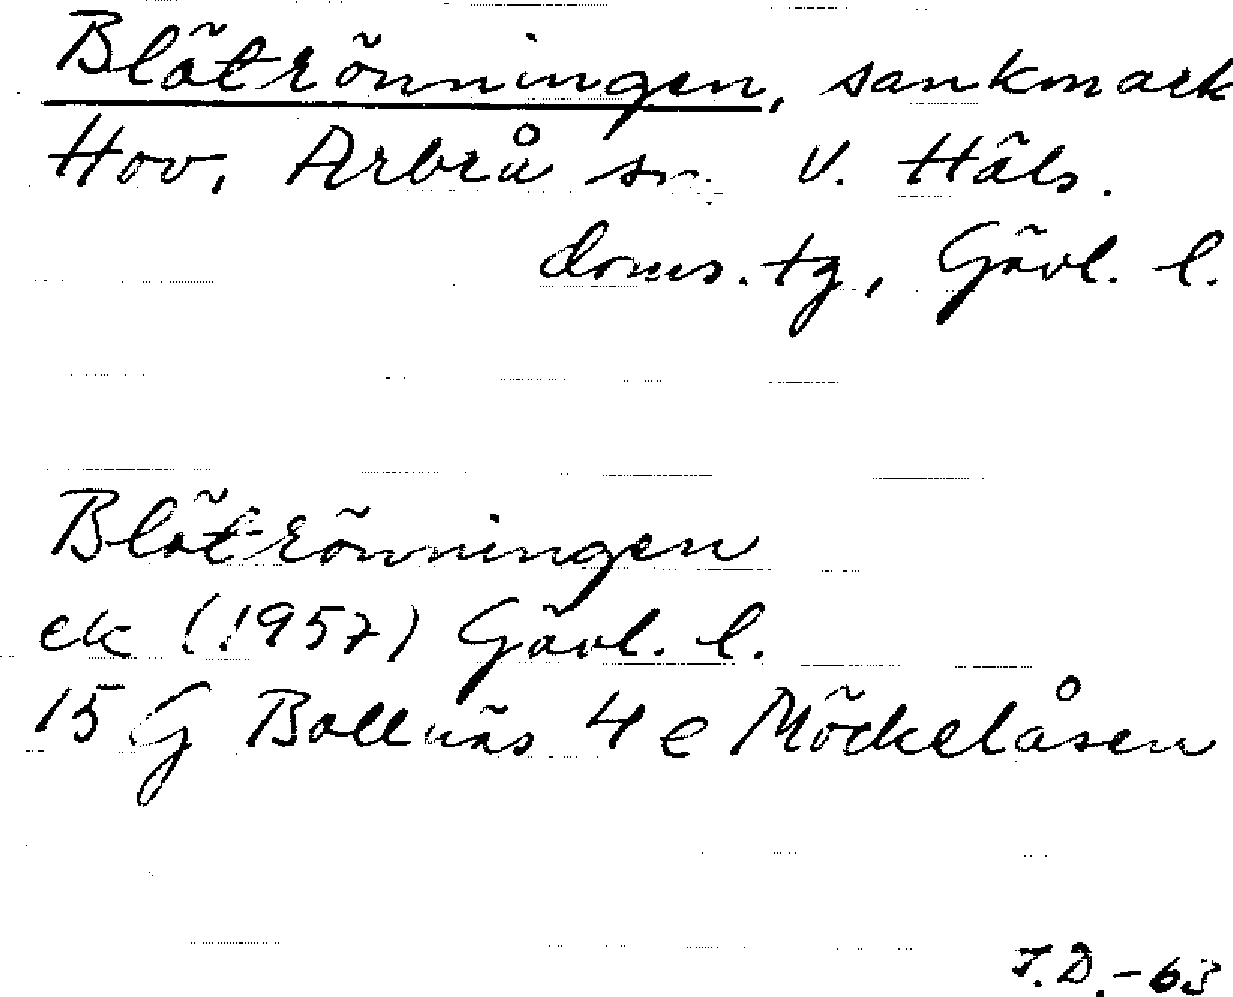 Blötrönningen, sankmark
Hov, Arbrå sn. V. Häls.
doms. tg, Gävl. l.
Blötrönningen
ek (1957) Gävl. l.
15 G Bollnäs 4 e Möckelåsen
J.D.-63